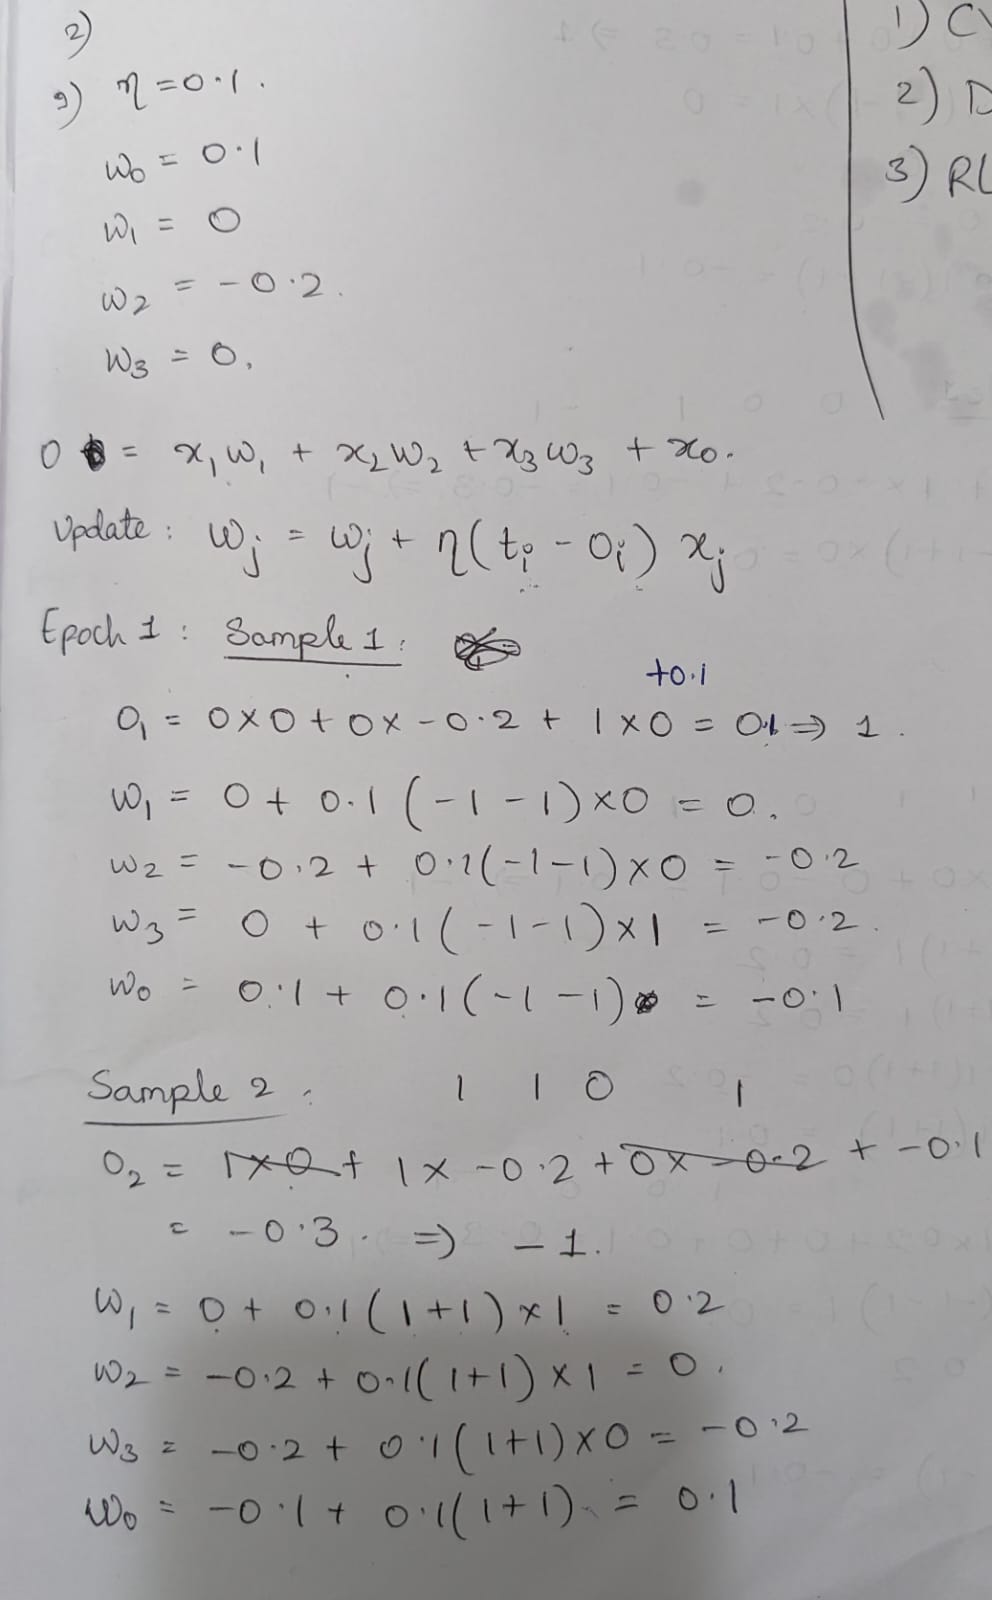 2)
9) η = 0.1.
w₀ = 0.1
w₁ = 0
w₂ = -0.2.
w₃ = 0.
1)
2)
3)
O = x₁w₁ + x₂w₂ + x₃w₃ + x₀.
Update: wⱼ = wⱼ + η(tᵢ - oᵢ) xⱼ
Epoch 1: Sample 1:
+0.1
O₁ = 0x0 + 0x-0.2 + 1x0 = 0.1 ⇒ 1.
w₁ = 0 + 0.1(-1-1)x0 = 0.
w₂ = -0.2 + 0.1(-1-1)x0 = -0.2
w₃ = 0 + 0.1(-1-1)x1 = -0.2.
w₀ = 0.1 + 0.1(-1-1) = -0.1
Sample 2: 1 1 0 1
O₂ = 1x0 + 1x-0.2 + 0x-0.2 + -0.1
= -0.3. ⇒ -1.
w₁ = 0 + 0.1(1+1)x1 = 0.2
w₂ = -0.2 + 0.1(1+1)x1 = 0.
w₃ = -0.2 + 0.1(1+1)x0 = -0.2
w₀ = -0.1 + 0.1(1+1) = 0.1